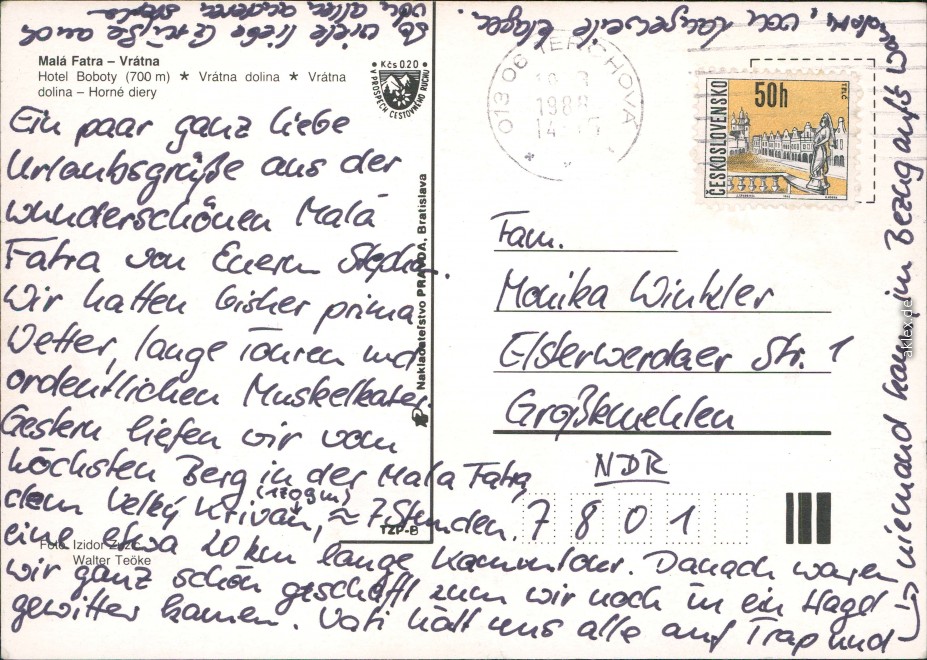 Malá Fatra – Vrátna
Hotel Boboty (700 m) * Vrátna dolina * Vrátna
dolina – Horné diery
Kčs 0.20
V PROSPECH CESTOVNÉHO RUCHU
Ein paar ganz liebe
Urlaubsgrüße aus der
wunderschönen Malá
Fatra von Euerm Stephan.
Wir hatten bisher prima
Wetter, lange Touren und
ordentlichen Muskelkater.
Gestern liefen wir vom
höchsten Berg in der Mala Fatra,
dem Velký Kriváň, ≈ 7 Stunden,
(1709 m)
eine etwa 20 km lange Kammtour. Danach waren
wir ganz schön geschafft zum wir noch in ein Hagel
gewitter kamen. Vati hält uns alle auf Trap und
niemand kann, im Bezug aufs Wandern, von Langeweile klagen.
So viele liebe Grüße auch
von allen anderen Stephan
Foto: Izidor
Walter Teöke
TZP-B
Nakladateľstvo PRAVDA, Bratislava
013 06 TERCHOVÁ
198
14
50h
ČESKOSLOVENSKO
TELČ
Fam.
Monika Winkler
Elsterwerdaer Str. 1
Großkmehlen
NDR
7801
aklex.de